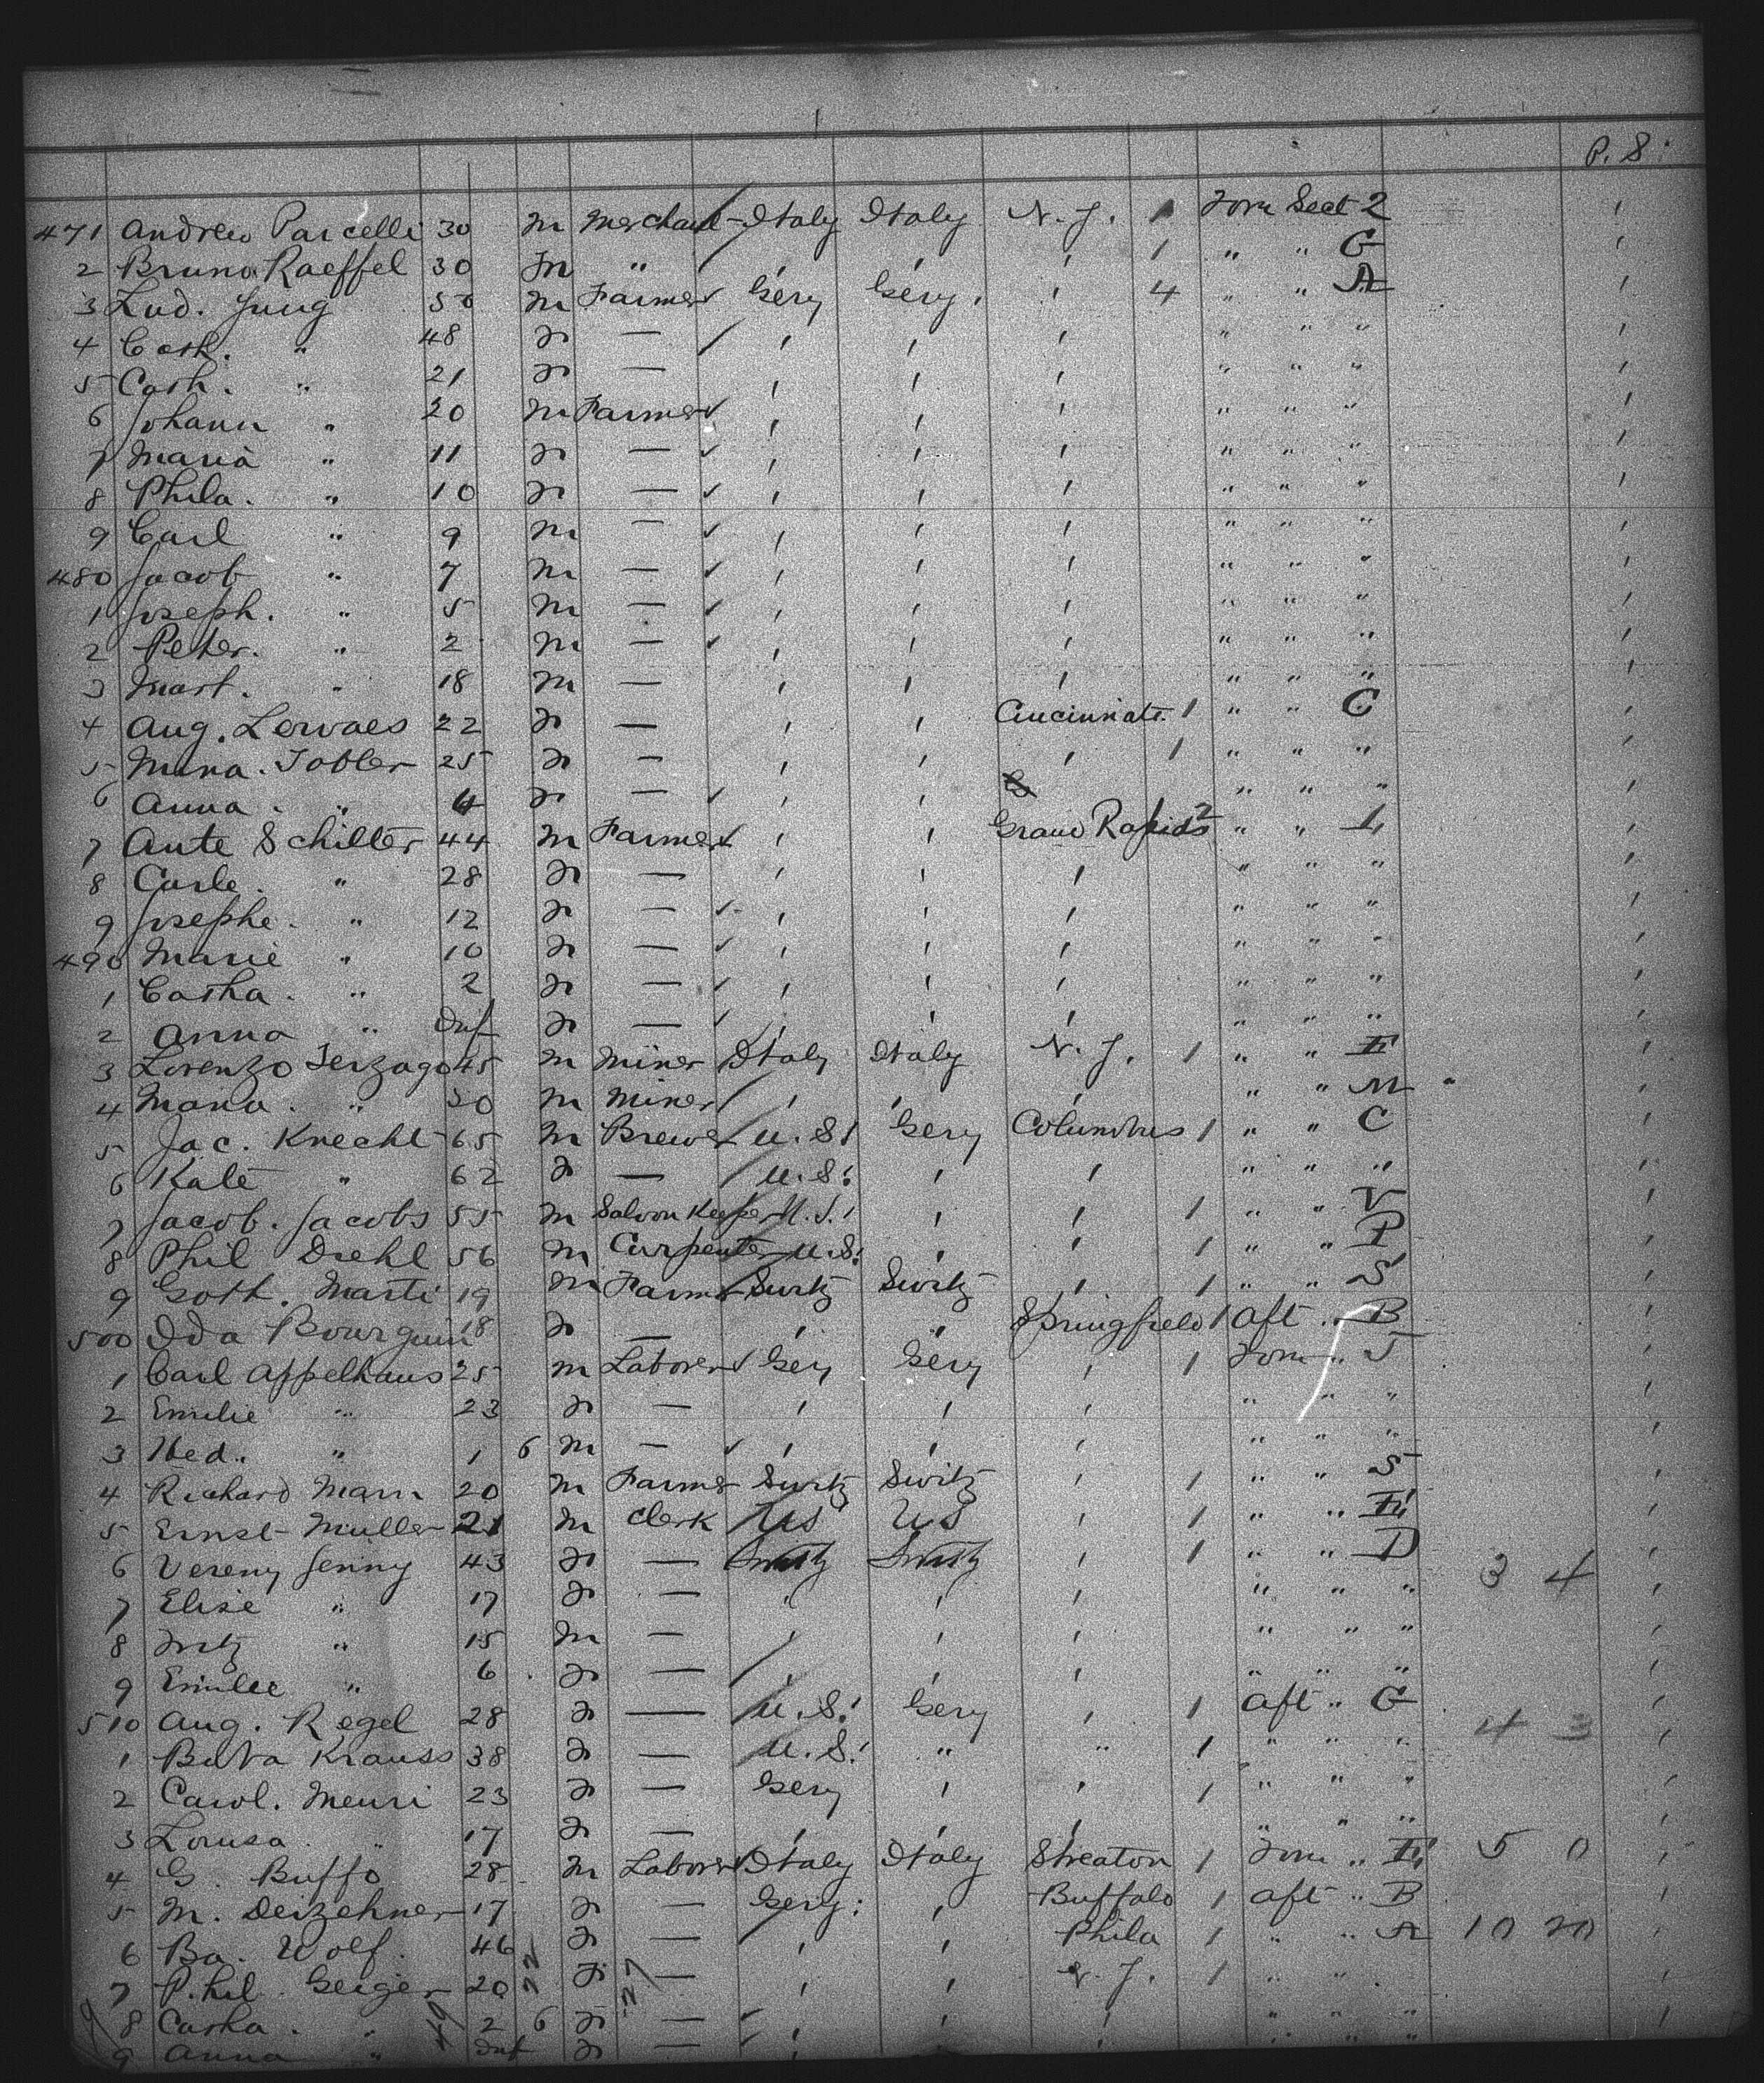 P. 8.
471 Andrew Parcelli 30 m Merchant Italy Italy N. J. 1 Forw Sect 2 '
2 Bruno Raeffel 30 m " ' ' ' 1 " " G '
3 Lud. Jung 50 m Farmer Gery Gery ' 4 " " A '
4 Cath. " 48 f — ' ' ' " " " '
5 Cath. " 21 f — ' ' ' " " " '
6 Johann " 20 m Farmer ' ' ' " " " '
7 Maria " 11 f — ' ' ' " " " '
8 Phila. " 10 f — ' ' ' " " " '
9 Carl " 9 m — ' ' ' " " " '
480 Jacob " 7 m — ' ' ' " " " '
1 Joseph. " 5 m — ' ' ' " " " '
2 Peter. " 2 m — ' ' ' " " " '
3 Mart. " 18 m — ' ' ' " " " '
4 Aug. Lervaes 22 f — ' ' Cincinnati 1 " " C '
5 Mina. Tobler 25 f — ' ' ' 1 " " " '
6 Anna. " 4 f — ' ' " " " '
7 Ante Schiller 44 m Farmer ' ' Grand Rapids 2 " " L '
8 Carle. " 28 f — ' ' ' " " " '
9 Josephe. " 12 f — ' ' ' " " " '
490 Marie " 10 f — ' ' ' " " " '
1 Catha. " 2 f — ' ' ' " " " '
2 Anna " Inf f — ' ' ' " " " '
3 Lorenzo Terzago 45 m Miner Italy Italy N. J. 1 " " '
4 Maria. " 30 m Miner ' ' ' " " M '
5 Jac. Knecht 65 m Brewer U. S. Gery Columbus 1 " " C '
6 Kate " 62 f — U. S. ' ' " " " '
7 Jacob. Jacobs 55 m Saloon Keeper U. S. ' ' 1 " " V '
8 Phil Diehl 56 m Carpenter U. S. ' ' 1 " " P '
9 Goth. Marti 19 m Farmer Switz Switz ' 1 " " S '
500 Ida Bourquin 18 f — ' " Springfield 1 Aft " B '
1 Carl Appelhaus 25 m Laborer Gery Gery ' 1 Forw " S '
2 Emilie " 23 f — ' ' ' " " " '
3 Hed. " 1 6 m — ' ' ' " " " '
4 Richard Marn 20 m Farmer Switz Switz ' 1 " " S '
5 Ernst Muller 21 m Clerk US US ' 1 " " '
6 Vereny Jenny 43 f — Switz Switz ' 1 " " D 3 4 '
7 Elise " 17 f — ' ' ' " " " '
8 Fritz " 15 m — ' ' ' " " " '
9 Emilee " 6 f — ' ' ' " " " '
510 Aug. Regel 28 f — U. S. Gery ' 1 Aft " G '
1 Krauss 38 f — U. S. " " 1 " " " 4 3 '
2 Carol. Meuri 23 f — Gery ' ' 1 " " " '
3 Louisa. " 17 f — ' ' ' " " " '
4 G. Buffo 28 m Laborer Italy Italy Streator 1 Forw " 5 0 '
5 M. Deizehner 17 f — Gery: ' Buffalo 1 Aft " B '
6 Ba. Wolf. 46 f — ' ' Phila 1 " " A 10 20 '
7 Phil. Geiger 20 22 f — ' ' N. J. 1 " " '
8 Catha. " 2 6 f — ' ' ' " " " '
9 Anna " Inf f — ' ' ' " " " '